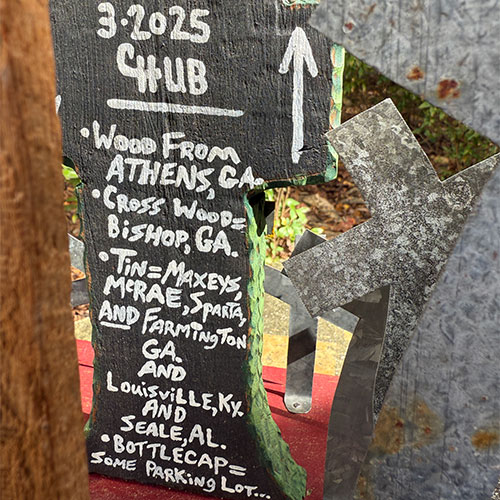 3.2025
CHUB
•WOOD FROM
ATHENS, GA.
•CROSS WOOD=
BISHOP, GA.
•TIN=MAXEYS,
MCRAE, SPARTA,
AND FARMINGTON
GA.
AND
LOUISVILLE, KY.
AND
SEALE, AL.
•BOTTLECAP=
SOME PARKING LOT...